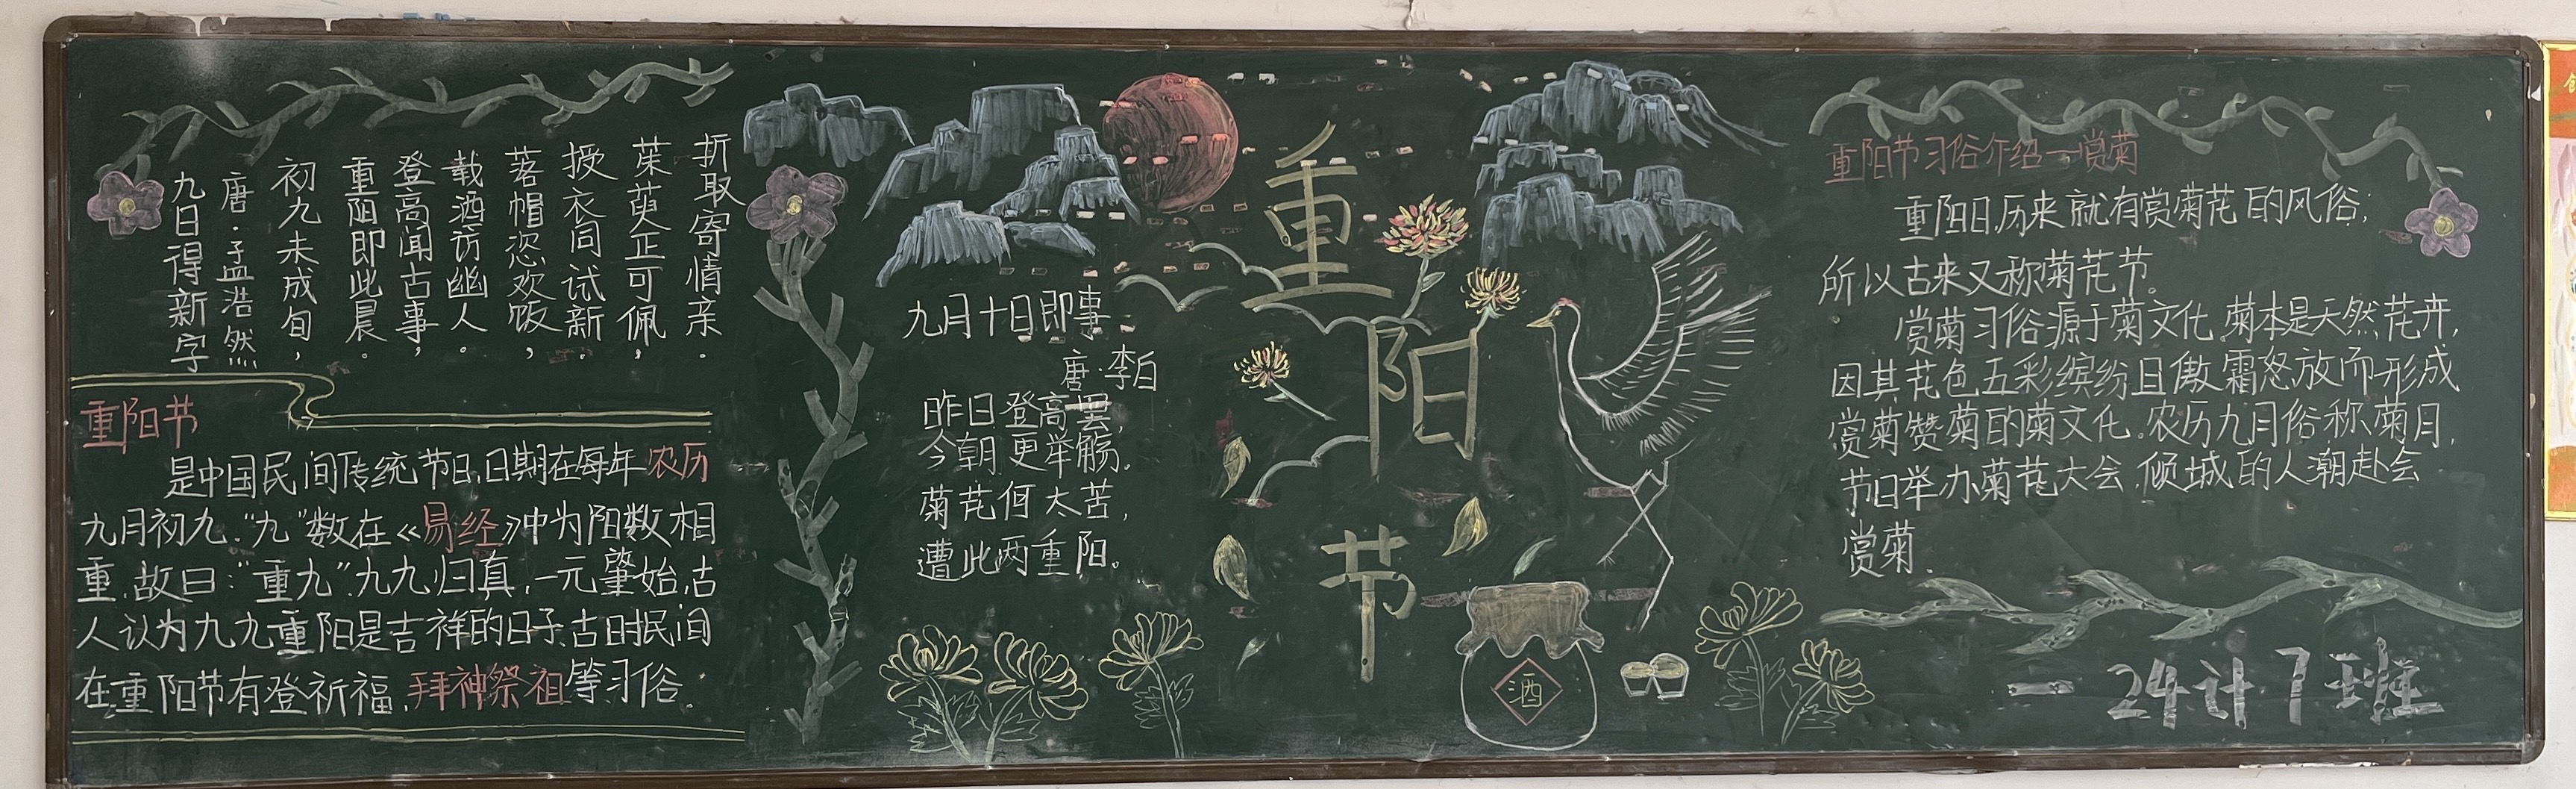 九日得新字
唐·孟浩然
初九未成旬，
重阳即此晨。
登高闻古事，
载酒访幽人。
落帽恣欢饭，
授衣同试新。
茱萸正可佩，
折取寄情亲.
重阳节
是中国民间传统节日,日期在每年农历
九月初九."九"数在《易经》中为阳数相
重.故曰:"重九".九九归真,一元肇始,古
人认为九九重阳是吉祥的日子.古时民间
在重阳节有登祈福.拜神祭祖等习俗.
九月十日即事
唐·李白
昨日登高罢,
今朝更举觞。
菊花何太苦,
遭此两重阳。
重阳节
酒
重阳节习俗介绍一赏菊
重阳日,历来就有赏菊花的风俗;
所以古来又称菊花节。
赏菊习俗源于菊文化.菊本是天然花卉,
因其花色五彩缤纷且傲霜怒放而形成
赏菊赞菊的菊文化.农历九月俗称菊月,
节日举办菊花大会.倾城的人潮赴会
赏菊.
一24计7班